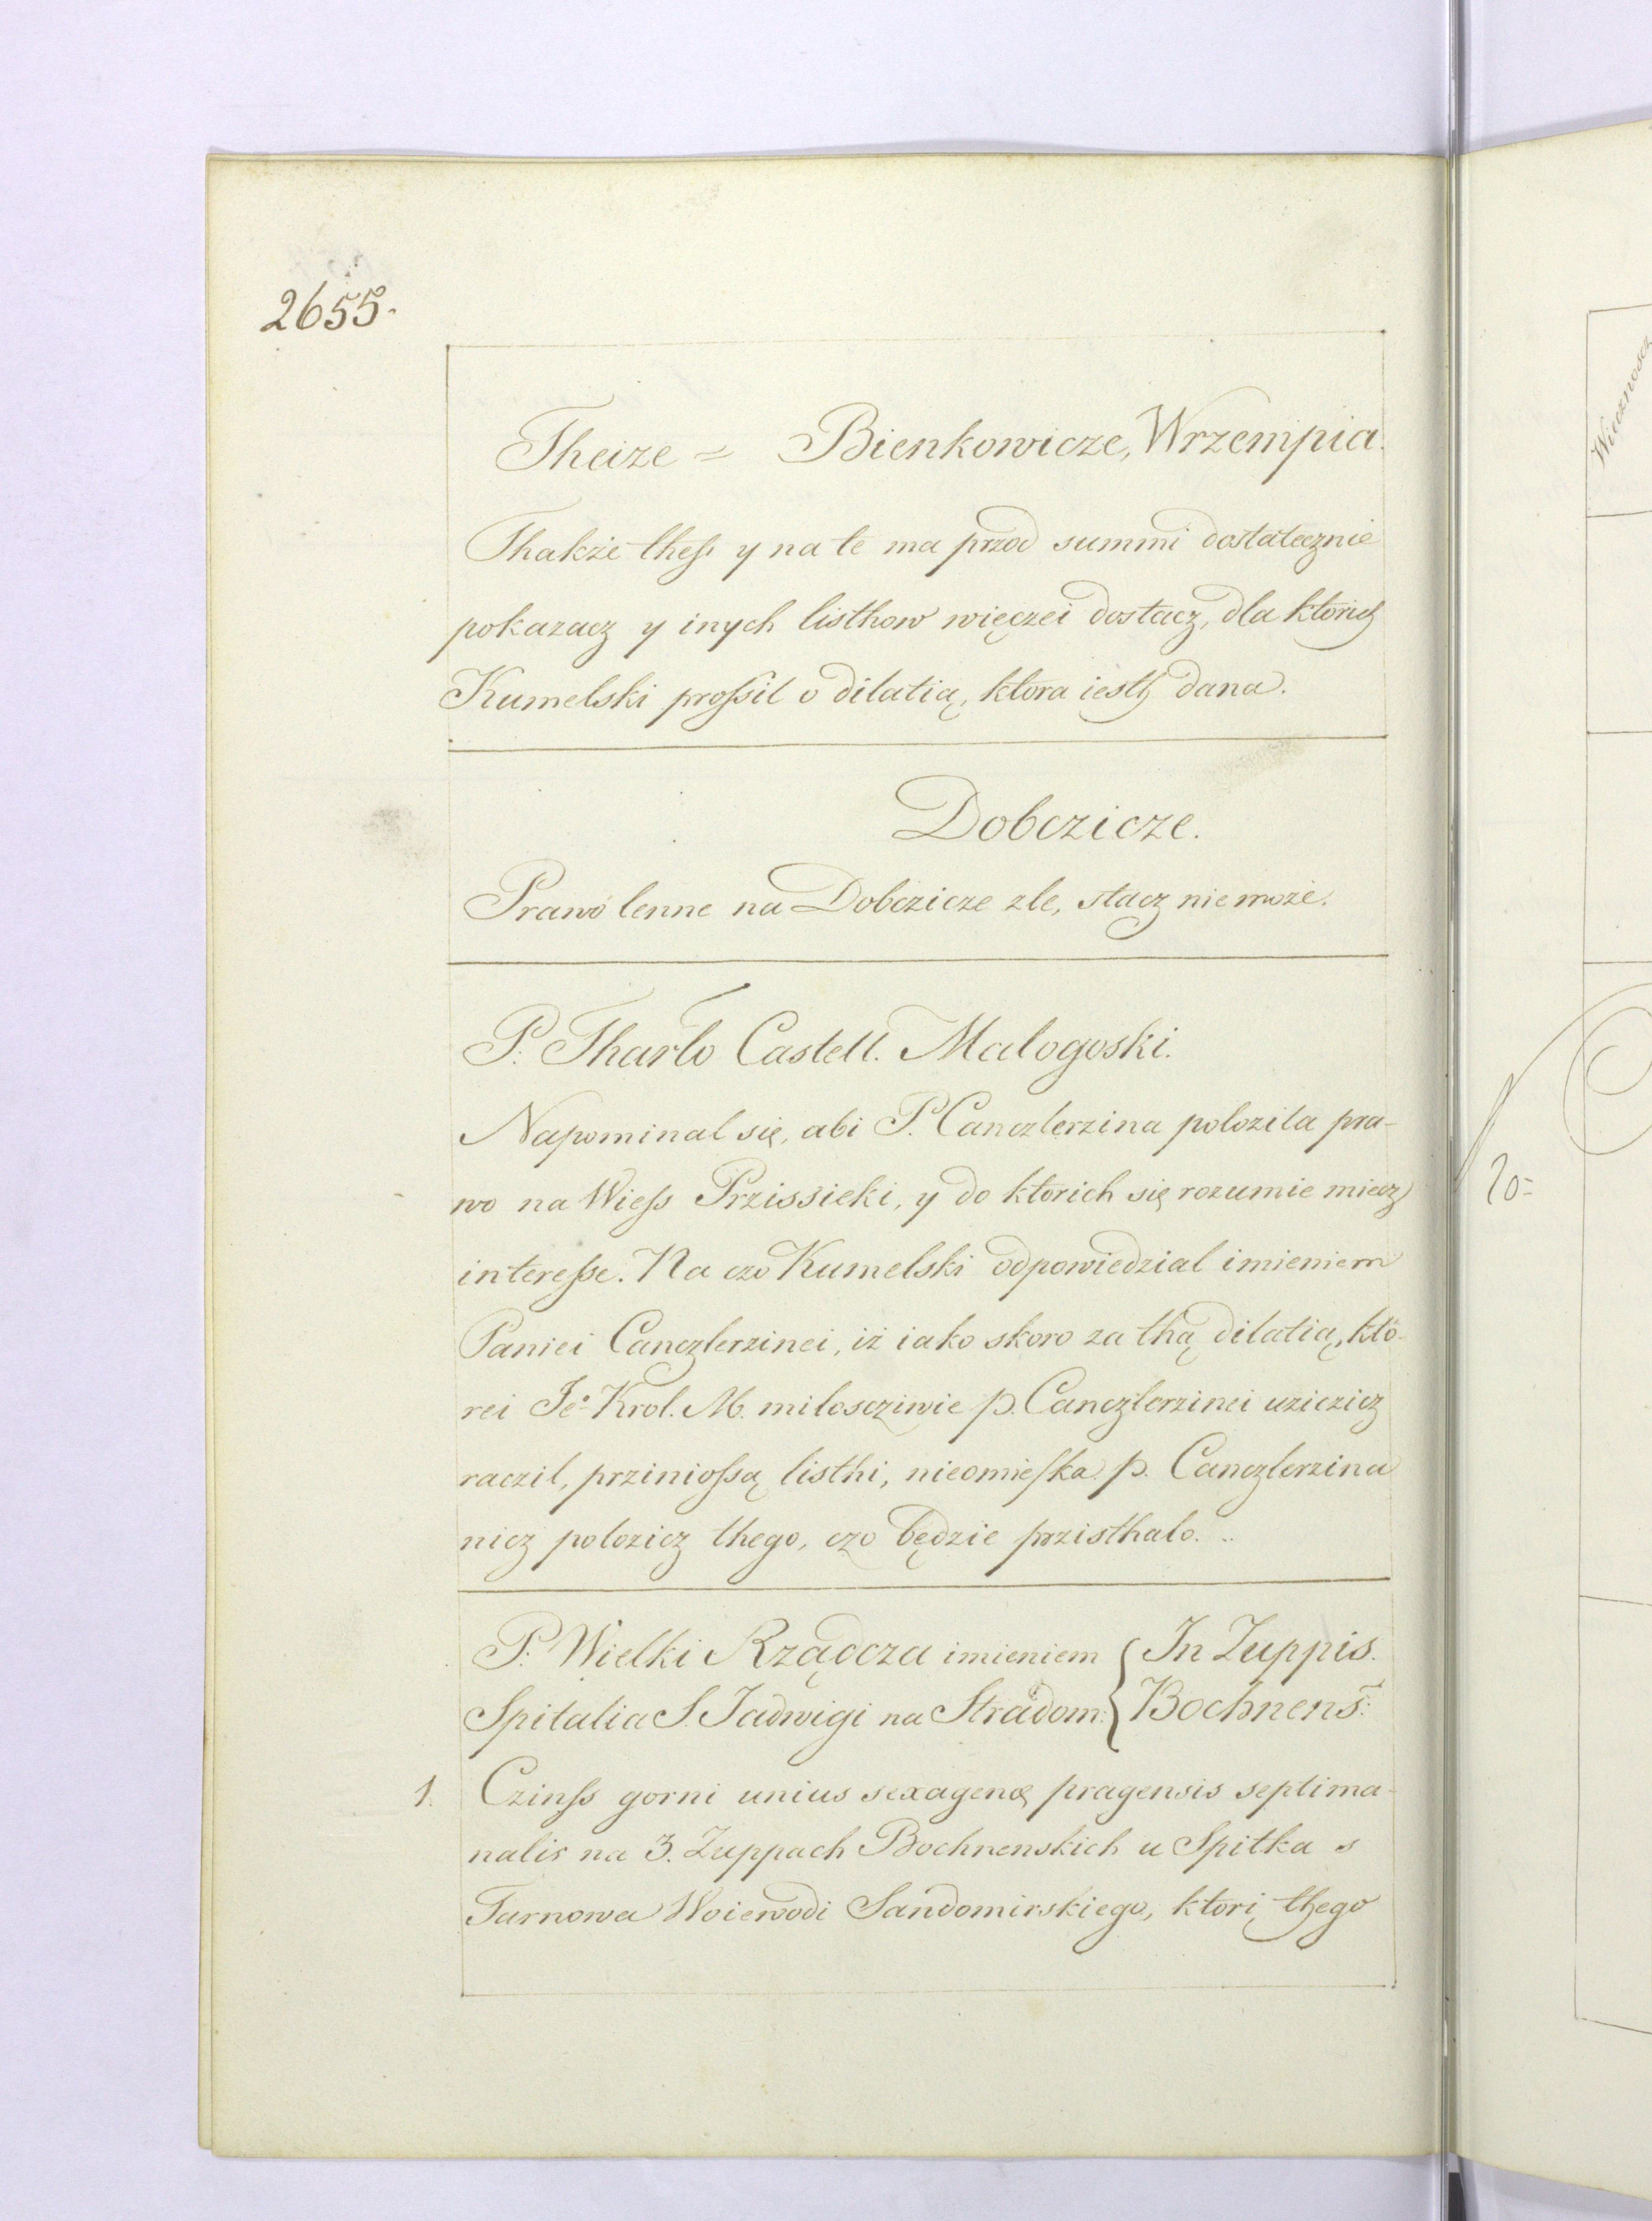 2655.
Theize = Bienkowicze, Wrzempia.
Thakże thess y na te ma przod summi dostatecznie
pokazacz y inych listhow więczei dostacz, dla ktorich
Kumelski prossil o dilatią, ktora iesth dana.
Dobczicze.
Prawo lenne na Dobczicze zle, stacz nie może.
P. Tharlo Castell. Malogoski.
Napominal się, abi P. Canczlerzina polozila pra-
wo na Wiess Przissieki, y do ktorich się rozumie miecz
interesse. Na czo Kumelski odpowiedzial imieniem
Paniei Canczlerzinei, iż iako skoro za thą dilatią, kto-
rei Je° Krol. M. miloscziwie p. Canczlerzinei uziczicz
raczil, prziniossą listhi, nieomieska p. Canczlerzina
nicz polozicz thego, czo będzie przisthalo...
P. Wielki Rządcza imieniem { In Zuppis.
Spitalia S. Jadwigi na Stradom: { Bochnens:
1. Czinss gorni unius sexagenę pragensis septima-
nalis na 3. Zuppach Bochnenskich u Spitka s
Tarnowa Woiewodi Sandomirskiego, ktori thego
Wiecznosez
20=